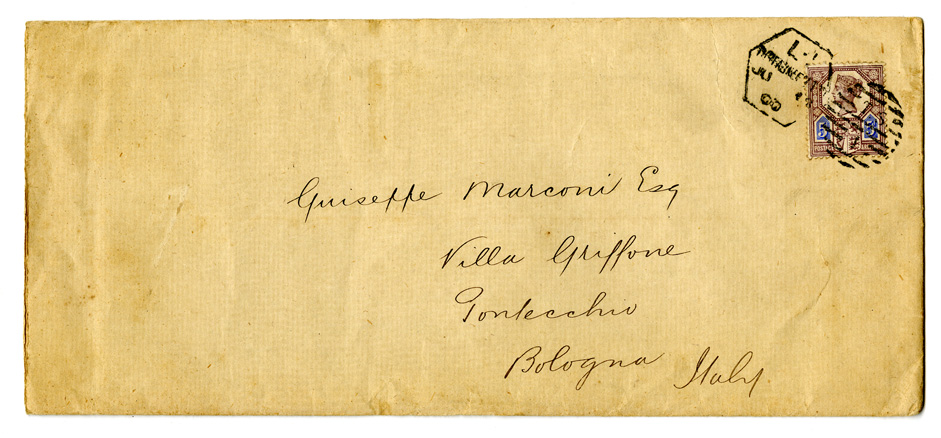 L
JU
00
5 5
Guiseppe Marconi Esq
Villa Griffone
Pontecchio
Bologna Italy